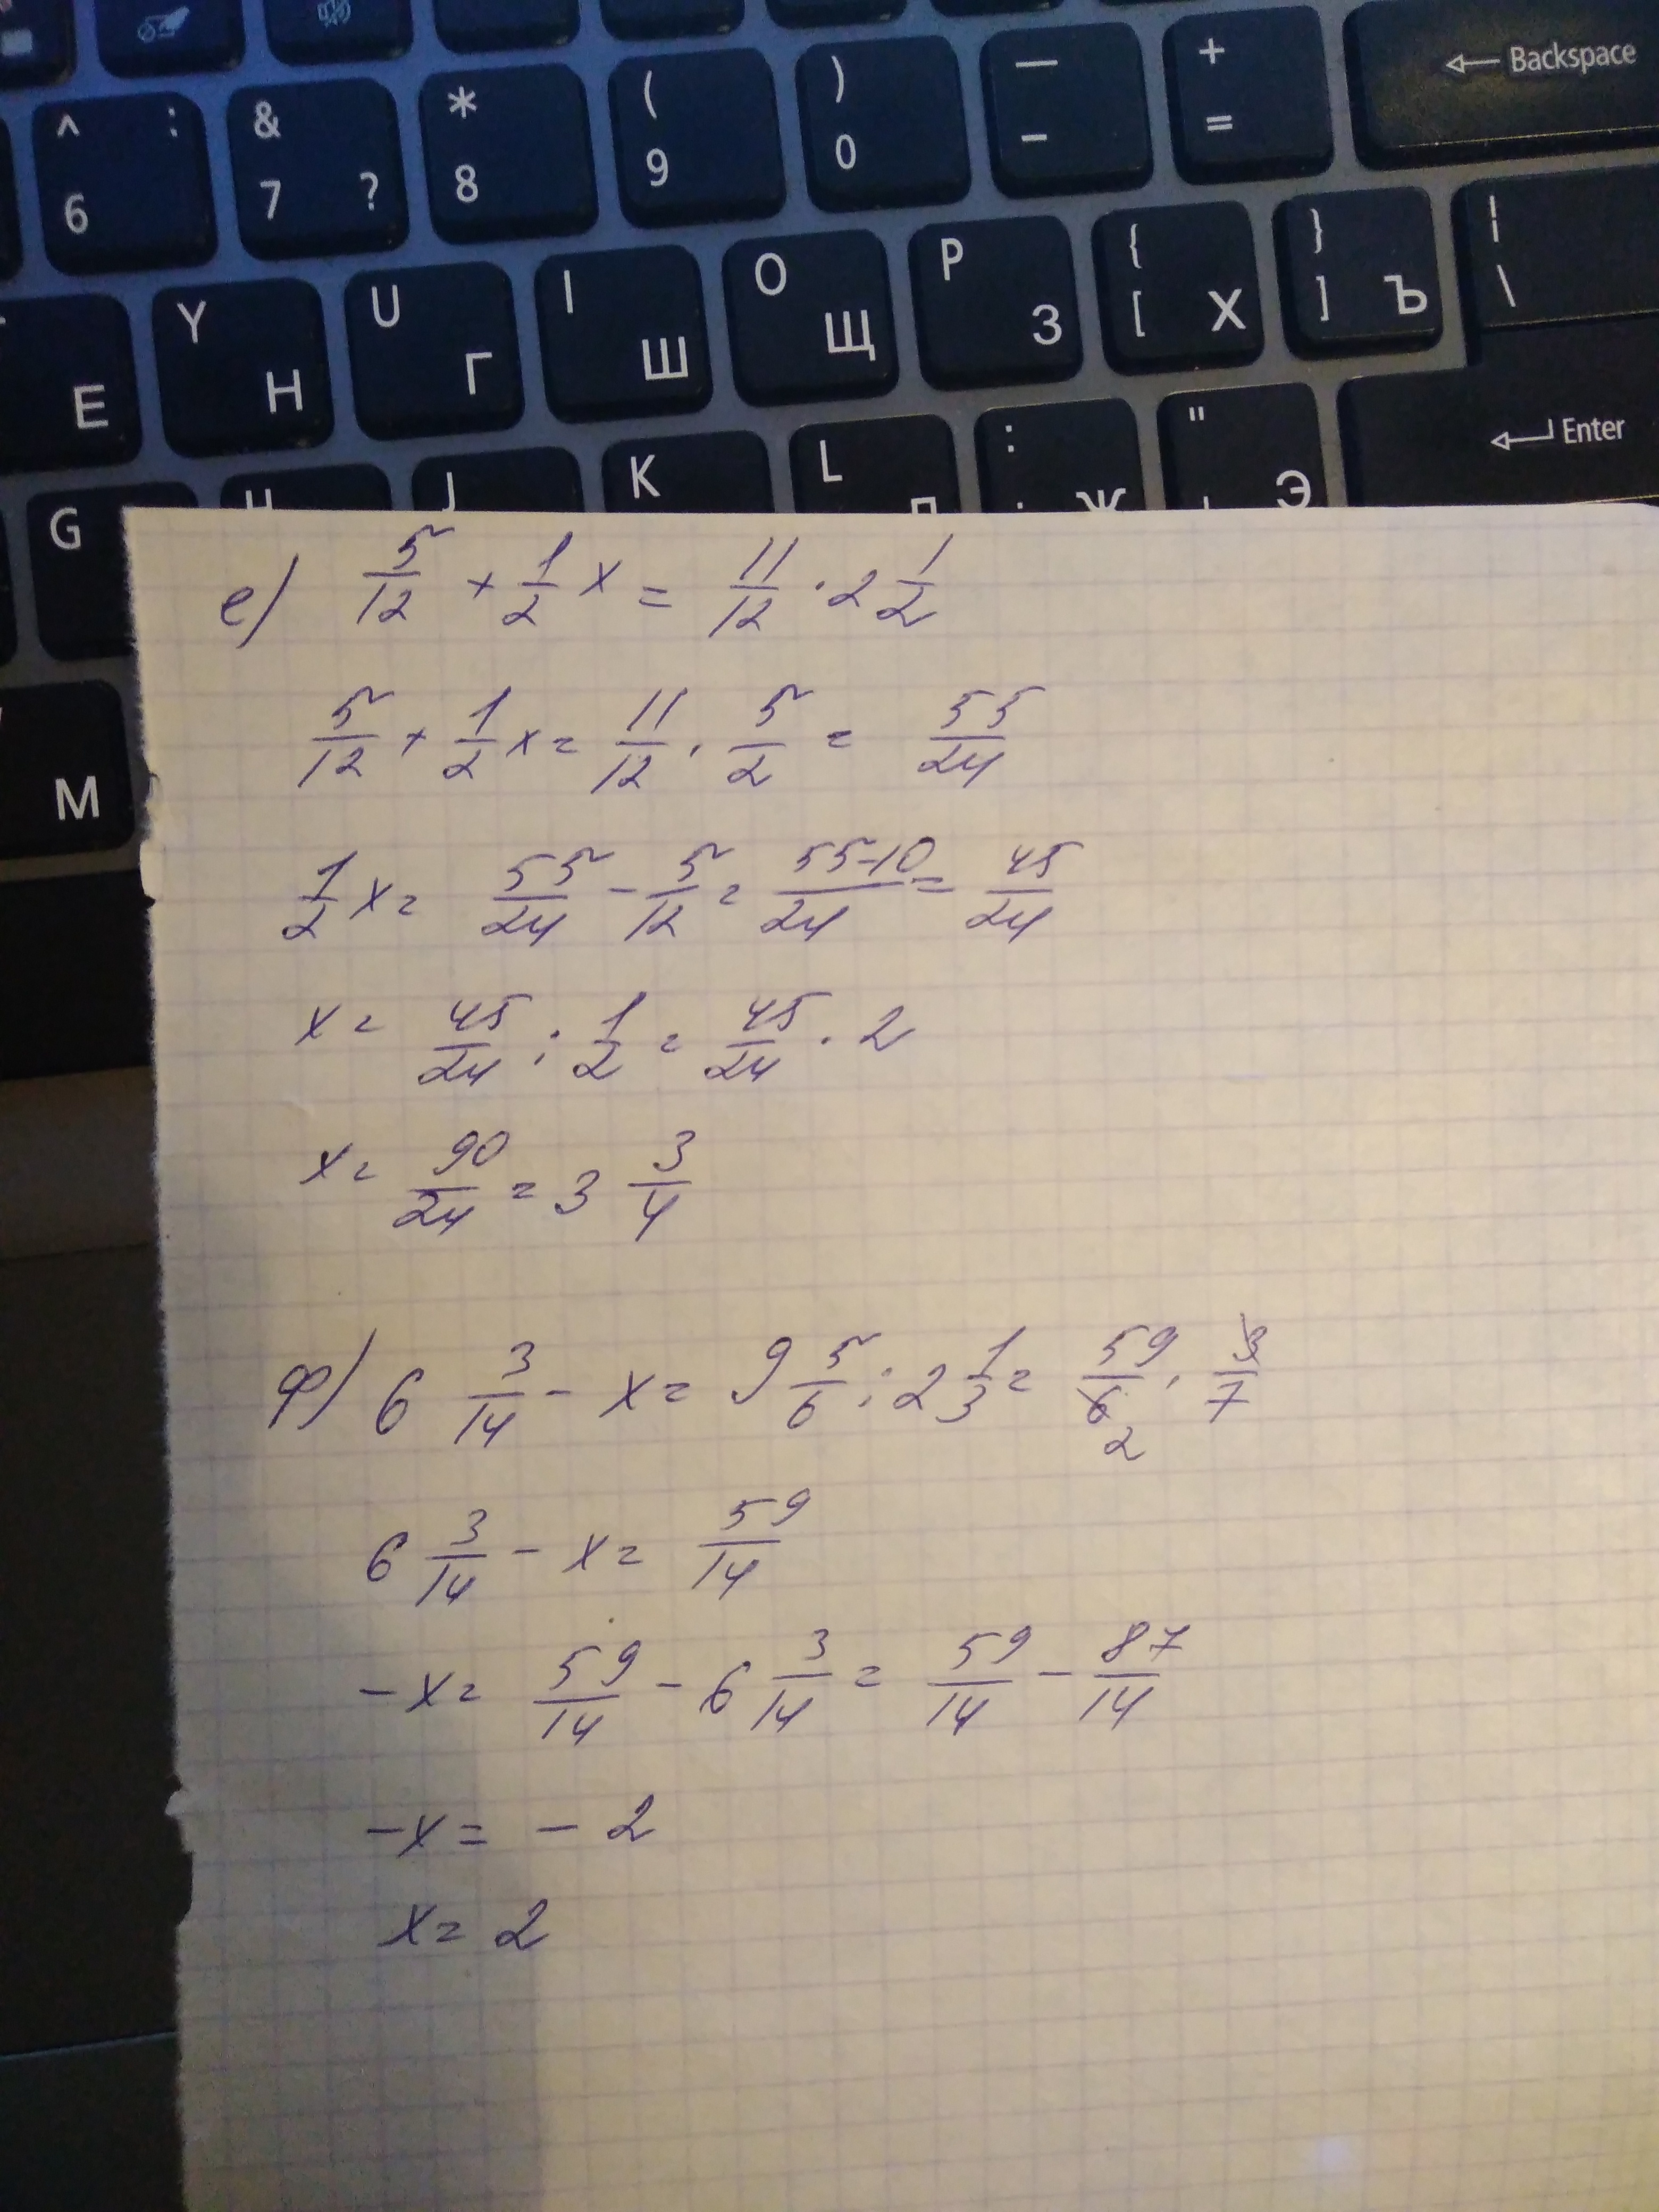 ← Backspace
^ : 6
& 7 ?
* 8
( 9
) 0
— -
+ =
E
Y Н
U Г
I Ш
O Щ
P З
{ [ Х
} ] Ъ
| \
G
J
K
L
: Ж
" Э
↵ Enter
M
е) 5/12 + 1/2 x = 11/12 · 2 1/2
5/12 + 1/2 x = 11/12 · 5/2 = 55/24
1/2 x = 55/24 - 5/12 = 55-10/24 = 45/24
x = 45/24 : 1/2 = 45/24 · 2
x = 90/24 = 3 3/4
ф) 6 3/14 - x = 9 5/6 : 2 1/3 = 59/6 2 · 3/7
6 3/14 - x = 59/14
-x = 59/14 - 6 3/14 = 59/14 - 87/14
-x = - 2
x = 2